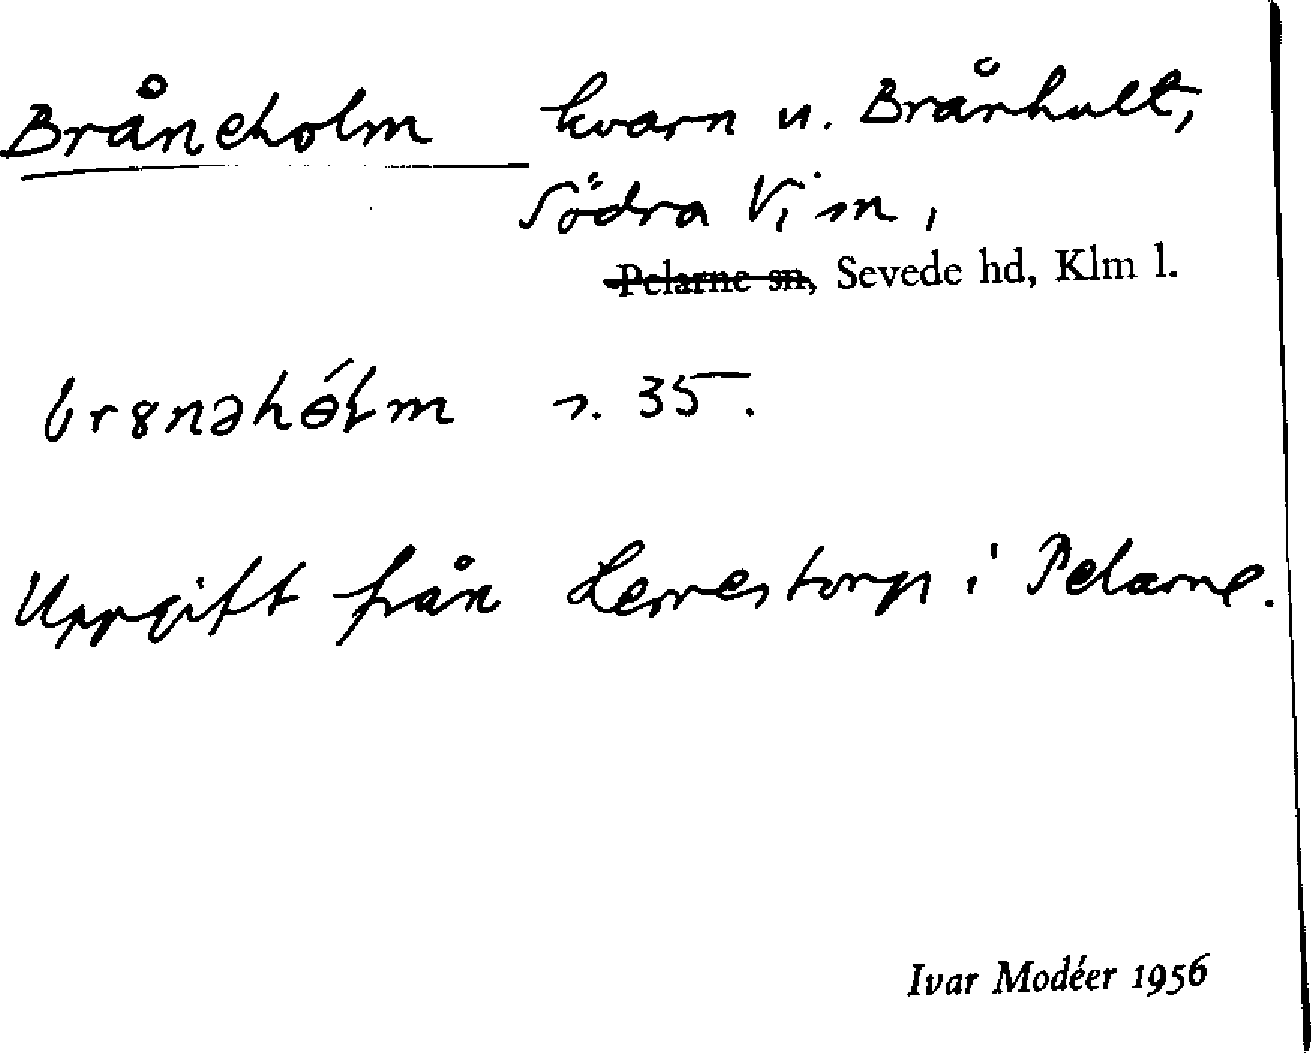 Bråneholm kvarn u. Brånhult,
Södra Vi sn,
Pelarne sn, Sevede hd, Klm l.
s. 35.
Uppgift från Herrestorp i Pelarne.
Ivar Modéer 1956